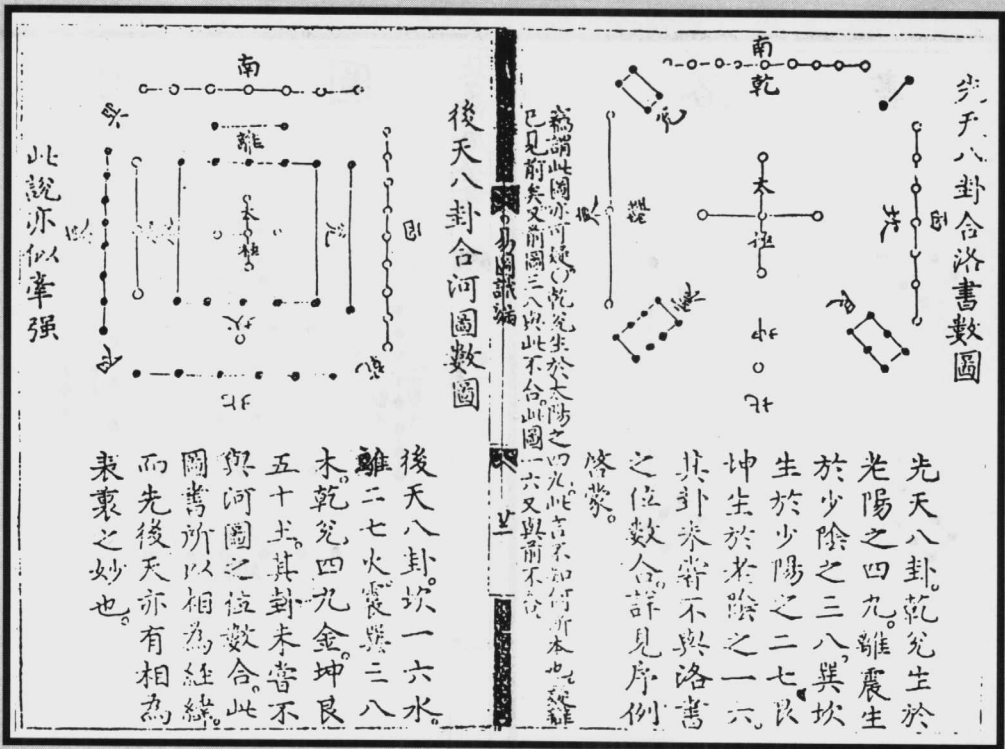 先天八卦合洛書數圖
南
乾
兌
太
極
離
坤
北
先天八卦。乾兌生於
老陽之四九。離震生
於少陰之三八。巽坎
生於少陽之二七。艮
坤生於老陰之一六。
其卦未嘗不與洛書
之位數合。詳見序例
啓蒙。
竊謂此圖亦可疑〇乾兌生於太陽之四九此言不知何所本也
已見前矣又前圖三八與此不合此圖一六又與前不合
後天八卦合河圖數圖
南
離
太
極
兌
坎
乾
北
此說亦似牽强
後天八卦。坎一六水。
離二七火。震巽三八
木。乾兌四九金。坤艮
五十土。其卦未嘗不
與河圖之位數合。此
圖書所以相為經緯。
而先後天亦有相為
表裏之妙也。